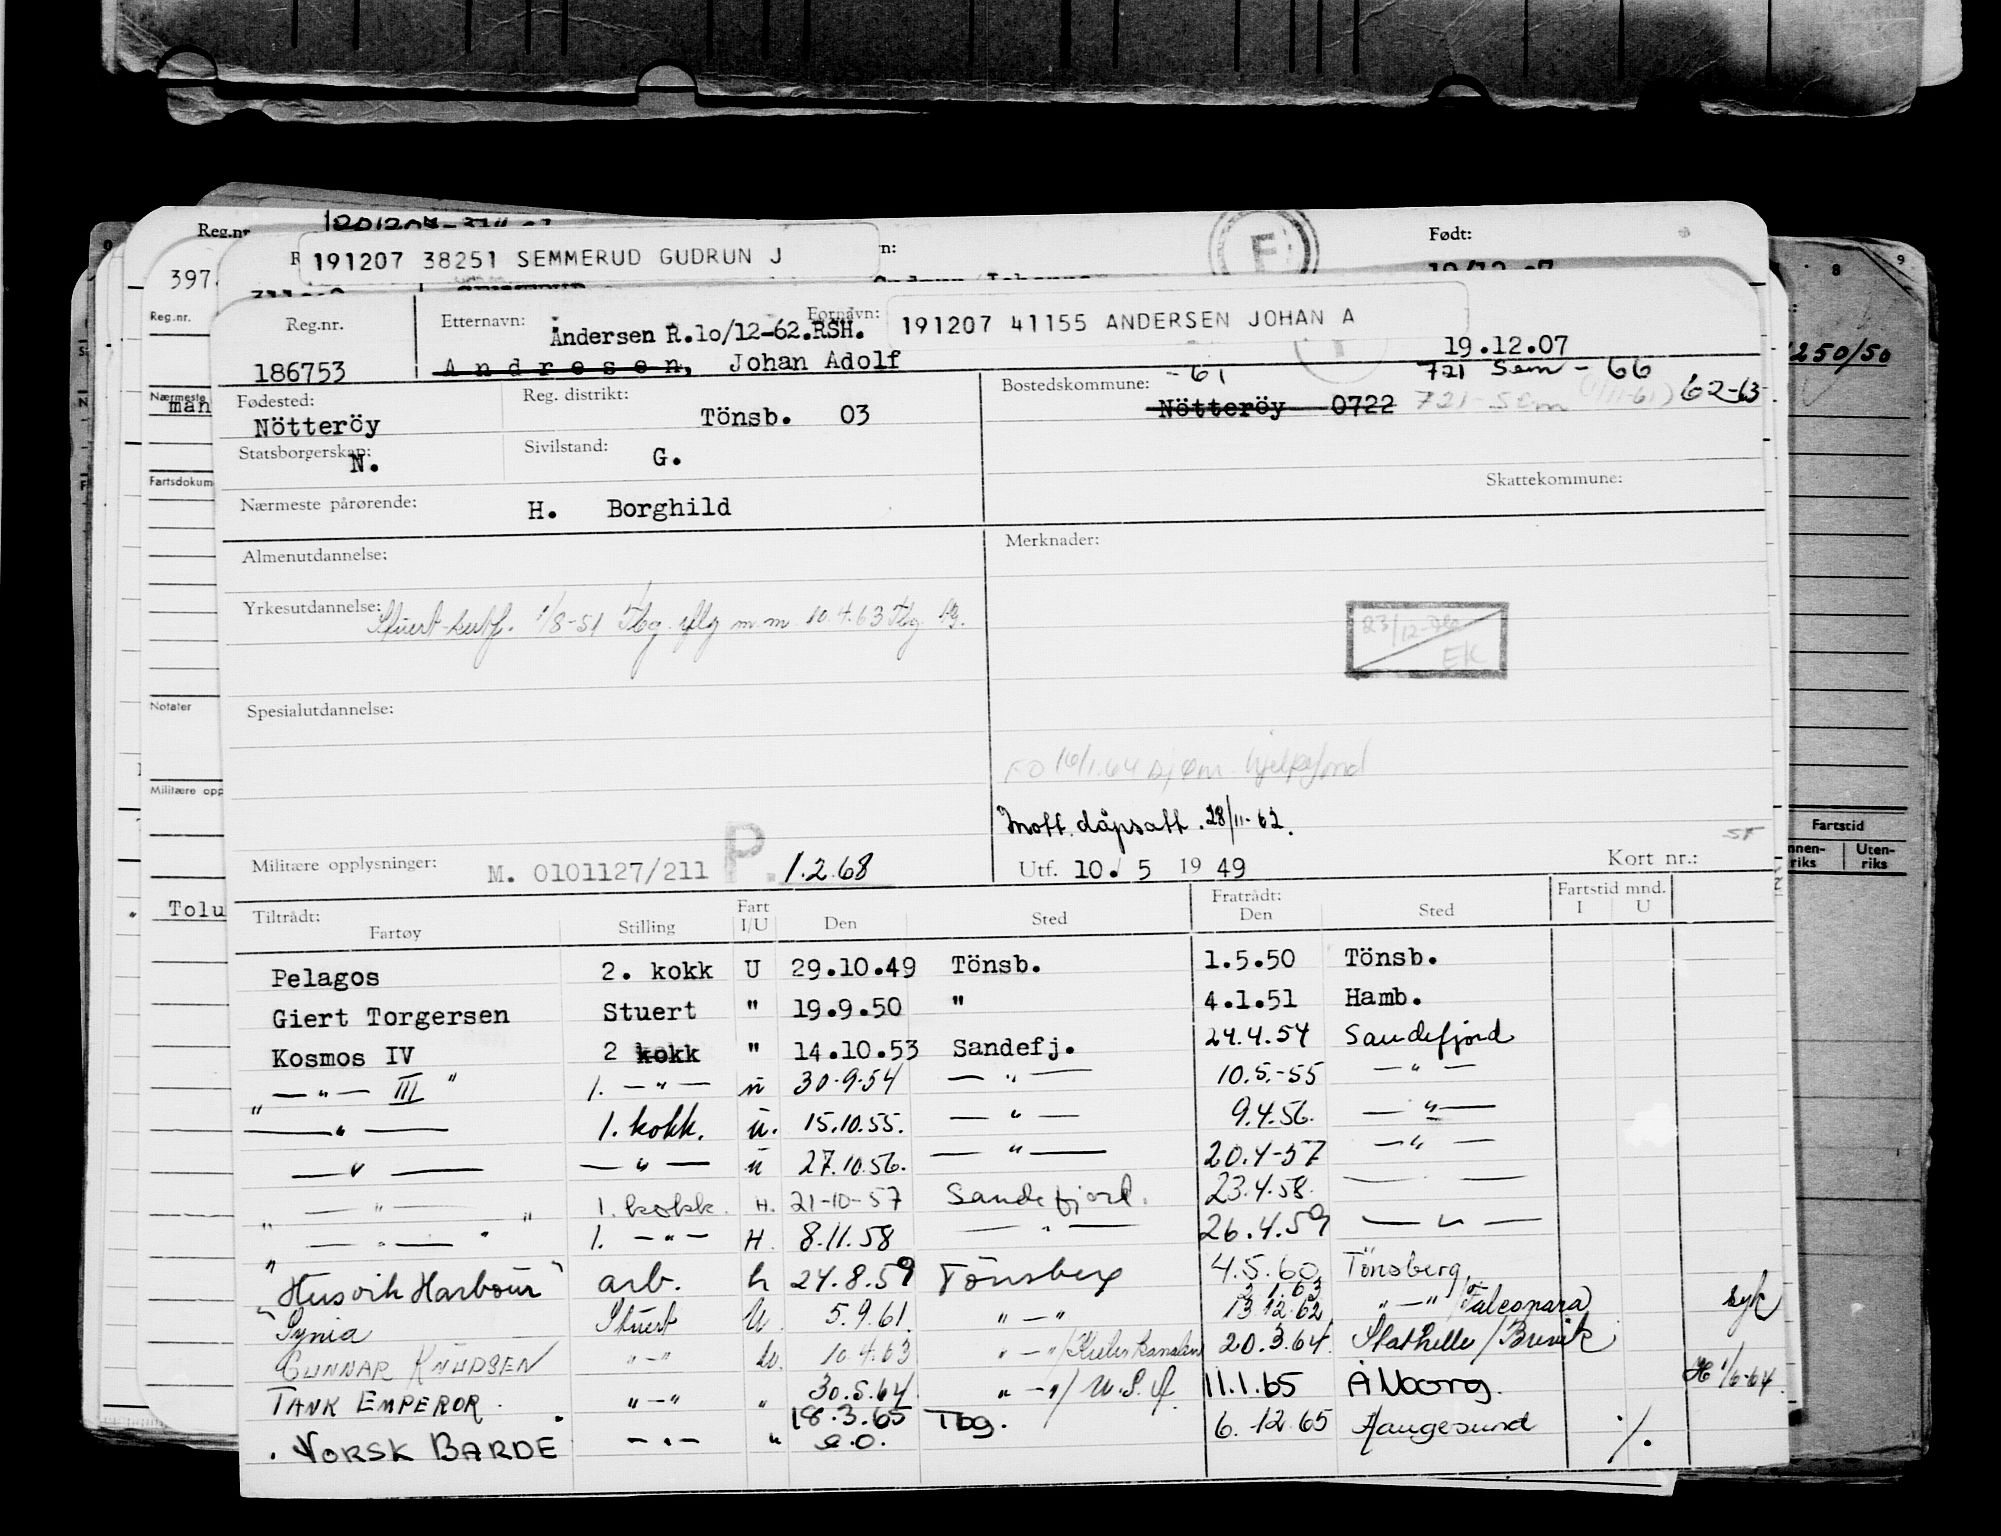 Reg.nr
Født:
191207 38251 SEMMERUD GUDRUN J
F
397
Reg.nr.
8 9
250/50
Reg.nr. Etternavn: Fornavn:
Andersen R.10/12-62.RSH. 191207 41155 ANDERSEN JOHAN A
186753 Andresen, Johan Adolf 19.12.07
-61 721 Sem - 66
Fødested: Reg. distrikt: Bostedskommune:
Nötteröy Tönsb. 03 Nötteröy 0722 721-Sem (1/11-61) 62-63
Statsborgerskap: Sivilstand:
N. G.
Skattekommune:
Nærmeste pårørende: H. Borghild
Nærmeste
man
Fartsdokum
Almenutdannelse: Merknader:
Yrkesutdannelse: Stuert-sertf. 1/8-51 Tbg. m.m. 10.4.63 Tbg.
23/12-
EK
Notater
Spesialutdannelse:
Militære opp
16/1.64 hjelpefond
Mott. dåpsatt. 28/11-62.
ST
Militære opplysninger: M. 0101127/211 P. 1.2.68 Utf. 10. 5 19 49 Kort nr.:
Fartstid
Uten-
riks
Tolu
Tiltrådt: Fart Fratrådt: Fartstid mnd.
Fartøy Stilling I/U Den Sted Den Sted I U
Pelagos 2. kokk U 29.10.49 Tönsb. 1.5.50 Tönsb.
Giert Torgersen Stuert " 19.9.50 " 4.1.51 Hamb.
Kosmos IV 2 kokk " 14.10.53 Sandefj. 24.4.54 Sandefjord
" — " — III " 1. — " — u 30-9-54 — " — 10.5.-55 — " —
— " — 1. kokk. u. 15.10.55. — " — 9.4.56. — " —
— " — — " — u 27.10.56. — " — 20.4-57 — " —
" — " — " 1. kokk. H. 21-10-57 Sandefjord. 23.4.58. — —
" — " — " 1. — " — H. 8.11.58 — " — 26.4.59 — " —
"Husvik Harbour" arb. h 24.8.59 Tönsberg 4.5.60 Tönsberg
3.1.63
"Synia Stuert U. 5.9.61. " — " 13 12 62 " — " / Falconara syk
GUNNAR KNUDSEN " — " U. 10.4.63 " — " / Kielerkanalen 20.3.64. Stathelle / Brevik
TANK EMPEROR " — " " 30.5.64. " — " / U.S.A. 11.1.65 Ålborg. 1/6-64
. NORSK BARDE — " — " 18.3.65 Tbg. 6.12.65 Haugesund ./.